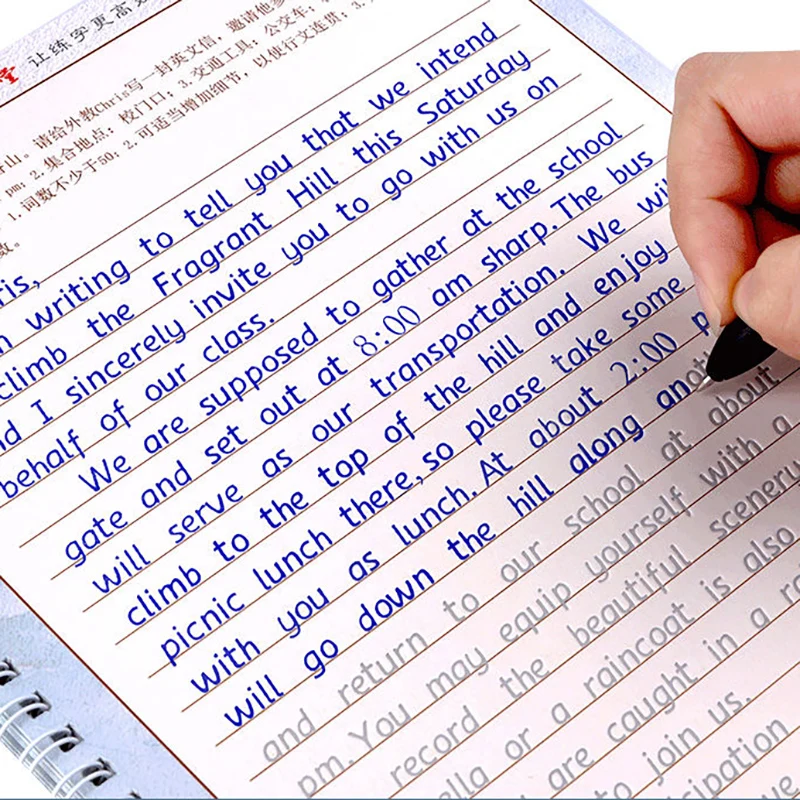 让练字更高效
香山。请给外教Chris写一封英文信，邀请他参
pm；2.集合地点：校门口；3.交通工具：公交车；
1.词数不少于50；2.可适当增加细节，以使行文连贯；3.
数。
ris,
writing to tell you that we intend
climb the Fragrant Hill this Saturday
nd I sincerely invite you to go with us on
behalf of our class.
We are supposed to gather at the school
gate and set out at 8:00 am sharp. The bus
will serve as our transportation. We wil
climb to the top of the hill and enjoy
picnic lunch there, so please take some
with you as lunch. At about 2:00 p
will go down the hill along anot
and return to our school at about
pm. You may equip yourself with a
record the beautiful scenery
ella or a raincoat is also
are caught in a ra
to join us.
cipation